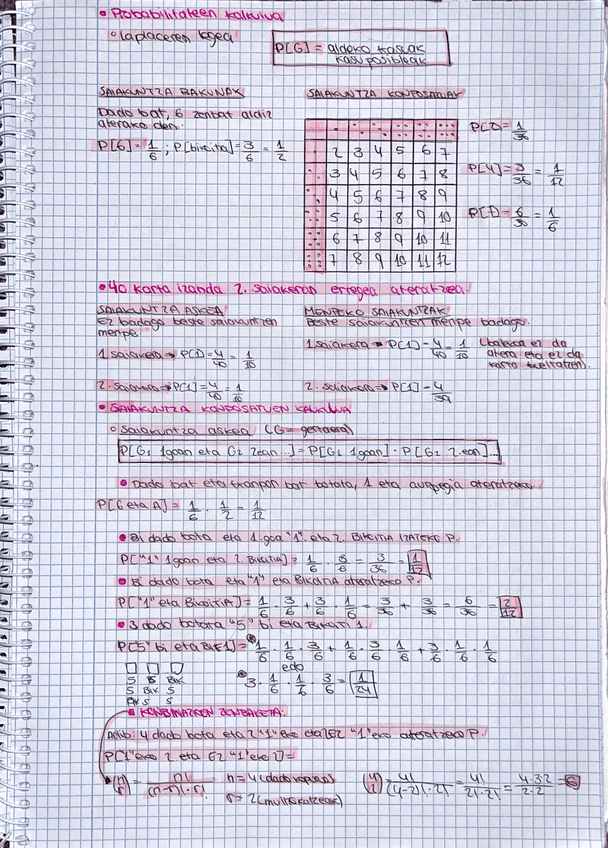 • Probabilitateen kalkulua
◦ Laplaceren legea
P[G] = aldeko kasuak / kasu posibleak
SAIAKUNTZA BAKUNAK
Dado bat, 6 zenbat aldiz
aterako den.
P[6] = 1/6 ; P[bikoitia] = 3/6 = 1/2
SAIAKUNTZA KONPOSATUAK
2 3 4 5 6 7
3 4 5 6 7 8
4 5 6 7 8 9
5 6 7 8 9 10
6 7 8 9 10 11
7 8 9 10 11 12
P[2] = 1/36
P[4] = 3/36 = 1/12
P[7] = 6/36 = 1/6
• 40 karta izanda 2. saiakeran erregea ateratzea.
SAIAKUNTZA ASKEA
Ez badago beste saiakuntzen
menpe.
1 saiakera → P[1] = 4/40 = 1/10
2. saiakera → P[1] = 4/40 = 1/10
MENPEKO SAIAKUNTZAK
Beste saiakuntzen menpe badago.
1 saiakera → P[1] = 4/40 = 1/10
atera eta ez da
karta
2. saiakera → P[1] = 4/39
• SAIAKUNTZA KONPOSATUEN KALKULUA
◦ Saiakuntza askea (G = gertaera)
P[G1 1goan eta G2 2ean...] = P[G1 1goan] · P[G2 2.ean]...
• Dado bat eta txanpon bat botata, 1 eta aurpegia ateratzeko.
P[6 eta A] = 1/6 · 1/2 = 1/12
• Bi dado bota eta 1.goa "1" eta 2. BIKOITIA IZATEKO P.
P["1" 1goan eta 2. BIKOITIA] = 1/6 · 3/6 = 3/36 = 1/12
• Bi dado bota eta "1" eta BIKOITIA ateratzeko P.
P["1" eta BIKOITIA] = 1/6 · 3/6 + 3/6 · 1/6 = 3/36 + 3/36 = 6/36 = 2/12
• 3 dado botata "5" bi eta BIKOITI 1.
P[5" bi eta BIK 1] = 1/6 · 1/6 · 3/6 + 1/6 · 3/6 · 1/6 + 3/6 · 1/6 · 1/6
edo
5 5 BIK
5 BIK 5
BIK 5 5
3 · 1/6 · 1/6 · 3/6 = 1/24
• KONBINAZIOEN ZENBAKETA:
Adib: 4 dado bota eta 2 "1"eko eta 2 EZ "1"eko ateratzeko P.
P["1"eko 2 eta EZ "1"eko 2] =
(n/r) = n! / (n-r)! · r!
n = 4 (dado kopurua)
r = 2
(4/2) = 4! / (4-2)! · 2! = 4! / 2! · 2! = 4·3·2 / 2·2 = 6